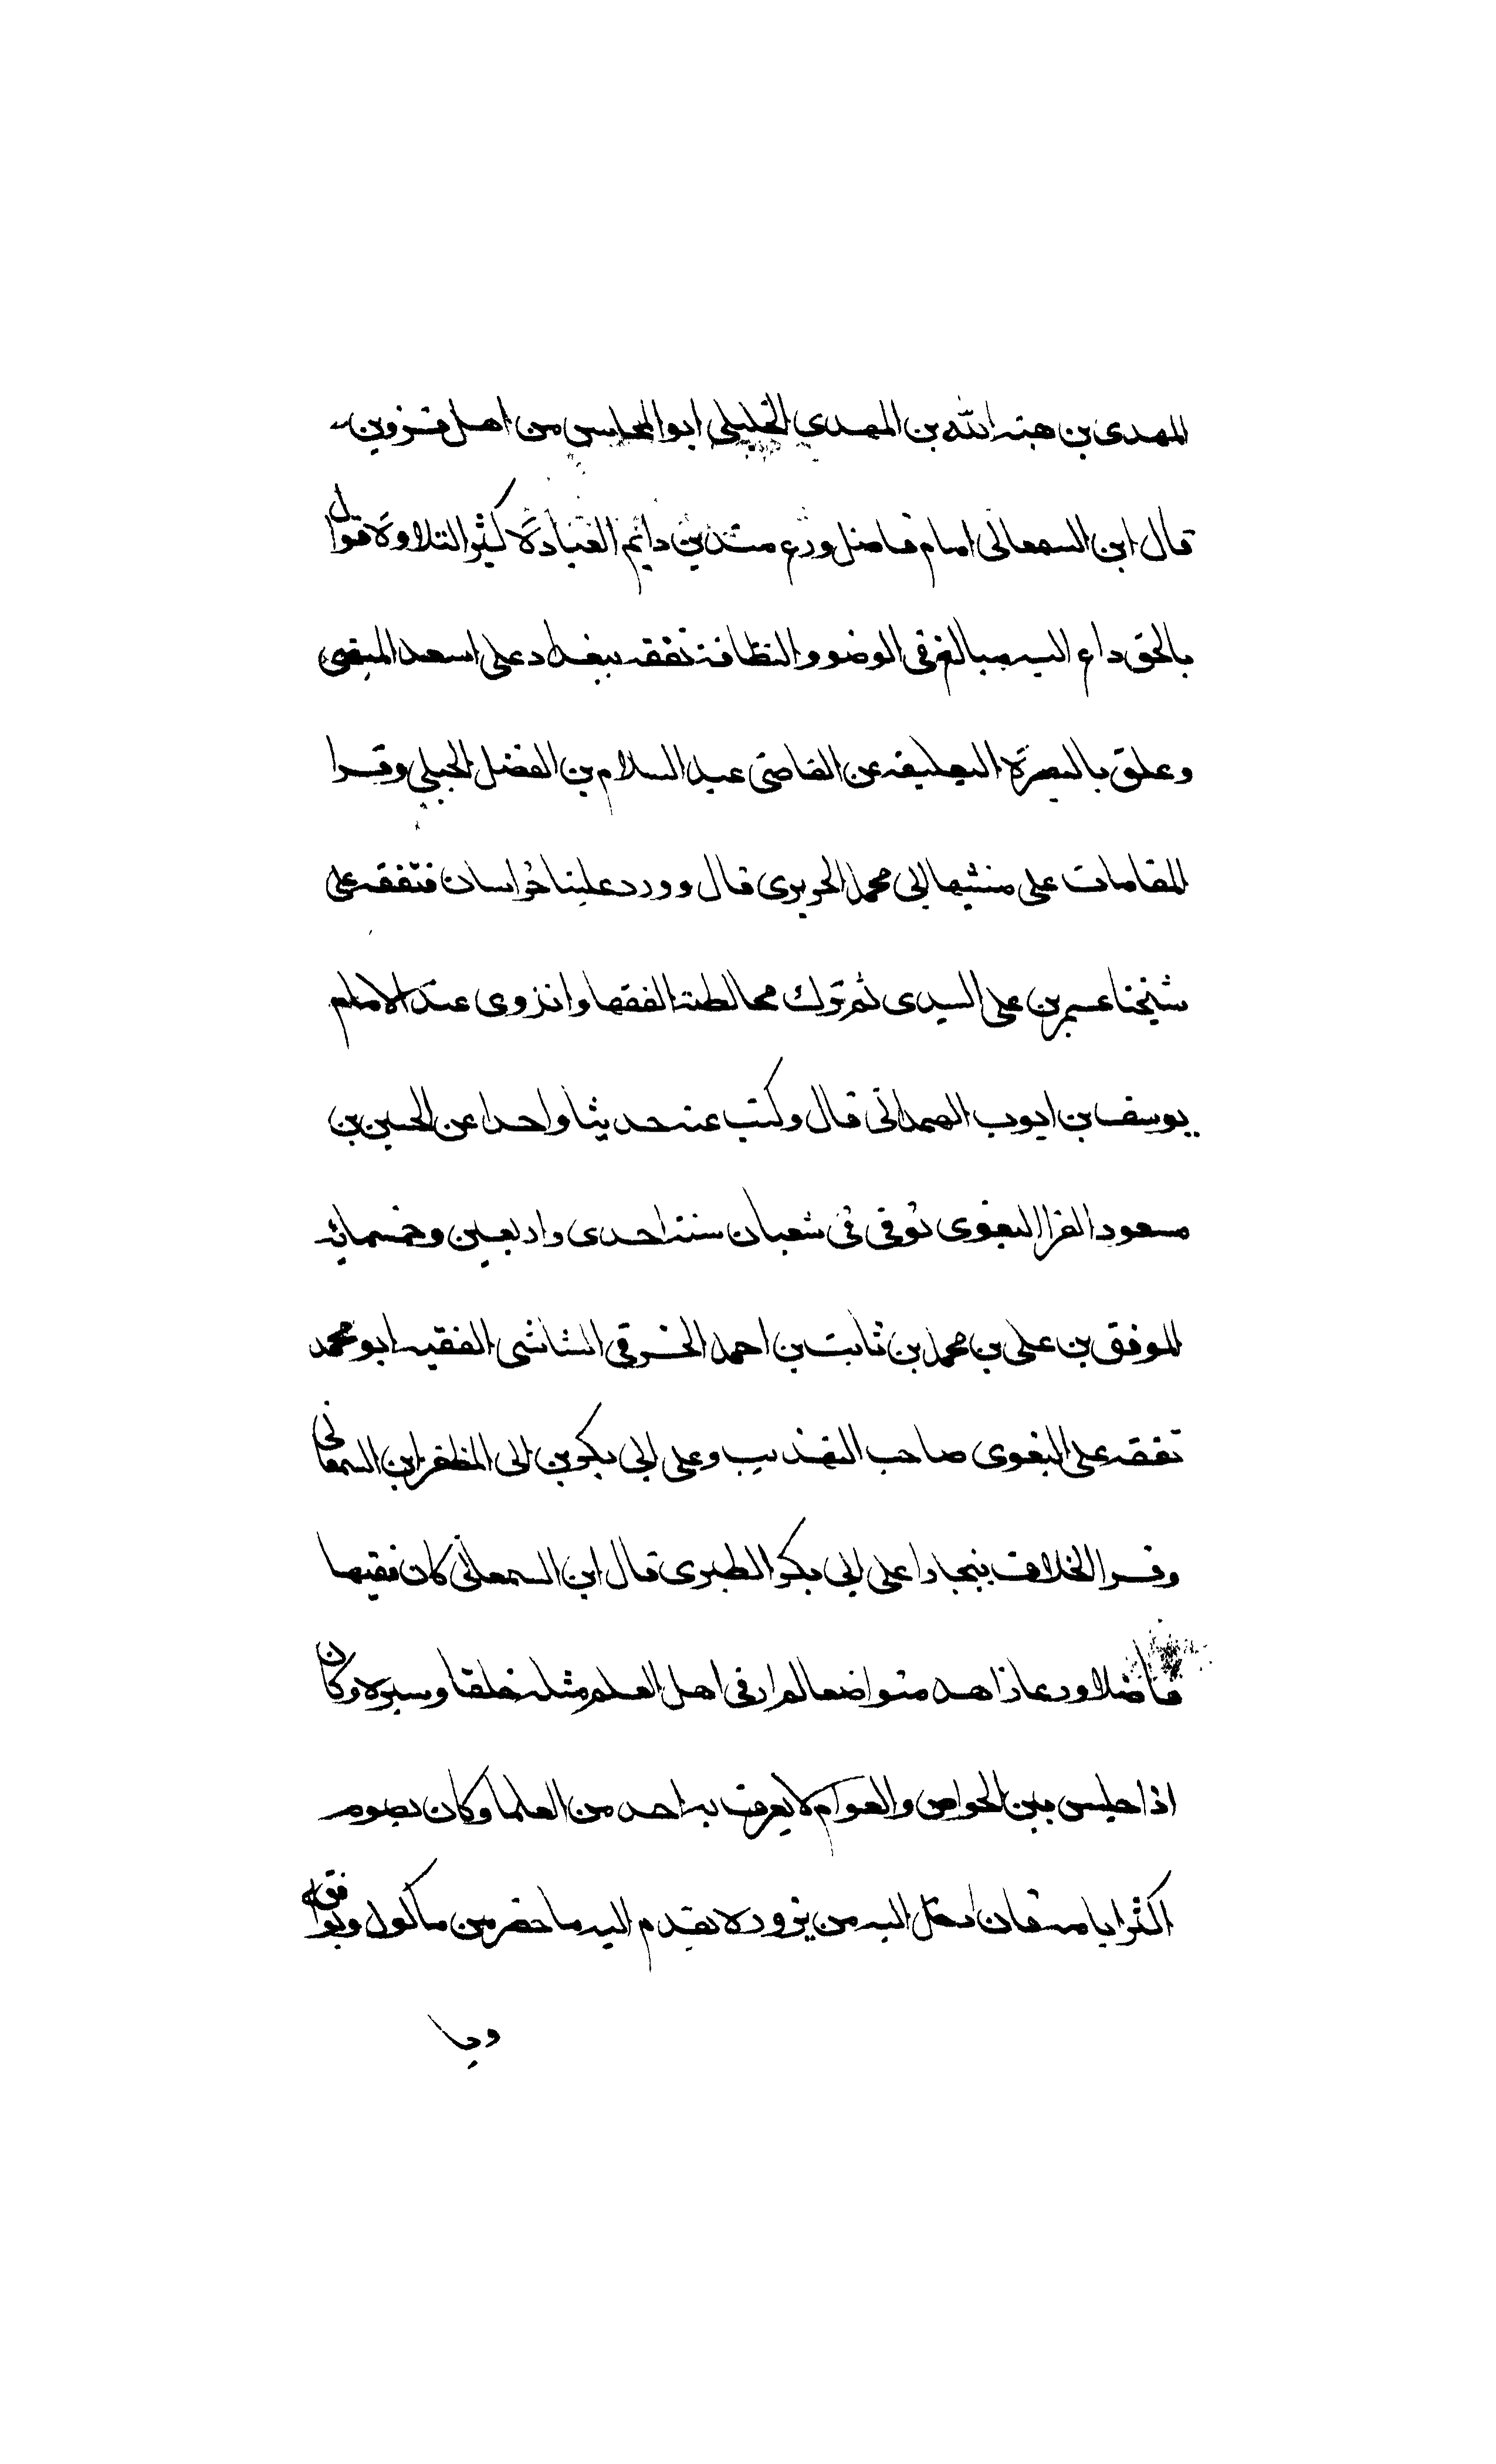 المهدى بن هبه الله بن المهدي الخليلى ابو المحاسن من اهل قزوين
قال ابن السمعانى امام فاضل ورع متدين دائم العبادة كثير التلاوة قوال
بالحق داع اليه مبالغ فى الوضو والنظافة تفقه ببغداد على اسعد الميهنى
وعلق بالبصرة التعليقة عن القاضى عبد السلام بن الفضل الجيلى وقرا
المقامات على منشيها ابى محمد الحريرى قال وورد علينا خراسان فتفقه على
شيخنا عمر بن على السيدى ثم ترك مخالطة الفقها وانزوى عند الامام
يوسف بن ايوب الهمدانى قال وكتب عنه حديثا واحدا عن الحسين بن
مسعود الفرا البغوى توفى فى شعبان سنة احدى واربعين وخمسمائه
الموفق بن على بن محمد بن ثابت بن احمد الخرقى الشاشى الفقيه ابو محمد
تفقه على البغوى صاحب التهذيب وعلى ابى بكر بن ابى المظفر ابن السمعانى
وقرا الخلاف ببخارا على ابى بكر الطبرى قال ابن السمعانى كان فقيها
فاضلا ورعا زاهد متواضعا لم ار فى اهل العلم مثله خلقا وسيرة وكان
اذا جلس بين الخواص والعوام لا يعرف به احد من العلما وكان يصوم
اكثر ايامه فان دخل اليه من يزوره يقدم اليه ما حضر من ماكول ويوافقه
ويا